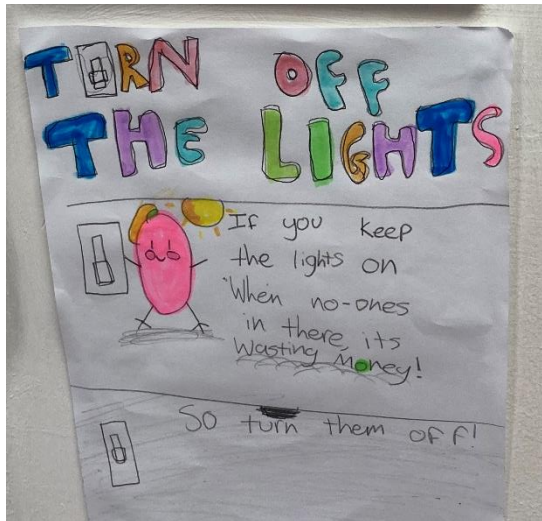 TURN OFF
THE LIGHTS
If you keep
the lights on
When no-ones
in there, its
Wasting Money!
So turn them off!